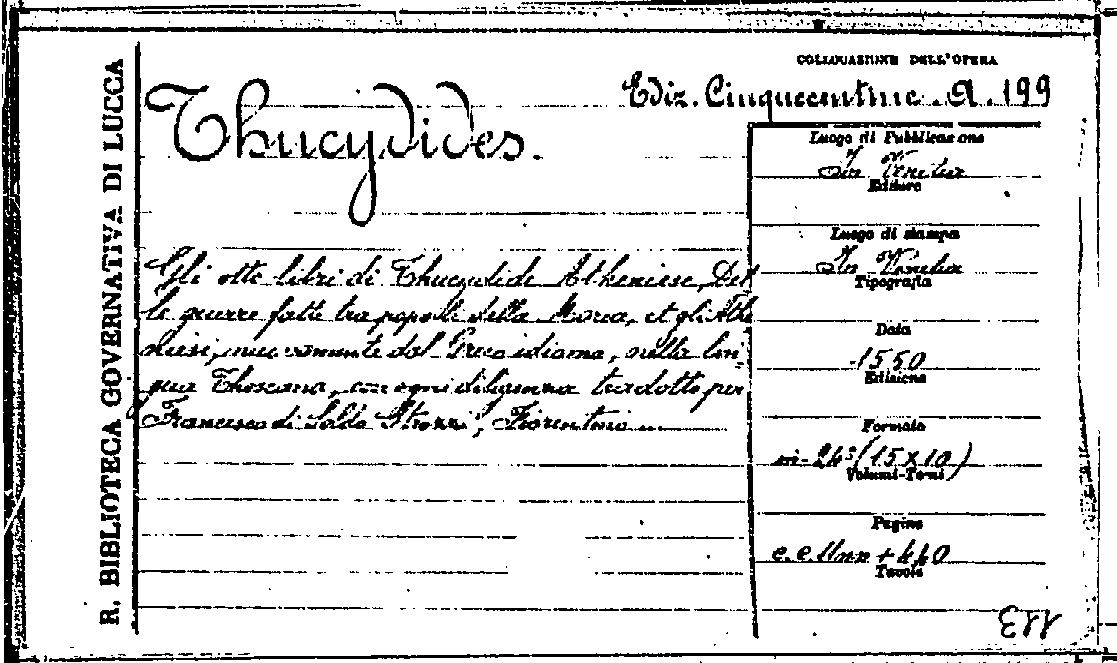 R. BIBLIOTECA GOVERNATIVA DI LUCCA
COLLOCAZIONE DELL'OPERA
Ediz. Cinquecentine. A. 199
Thucydides.
Gli otto libri di Thucydide Atheniese, Del
le guerre fatte tra popoli della Morea, et gli Athe
niesi, nuovamente dal Greco idioma, nella lin-
gua Thoscana, con ogni diligenza tradotto per
Francesco di Soldo Strozzi, Fiorentino
Luogo di Pubblicazione
In Venetia
Editore
Luogo di stampa
In Venetia
Tipografia
Data
1550
Edizione
Formato
in-24° (15x10)
Volumi-Tomi
Pagine
+ 440
Tavole